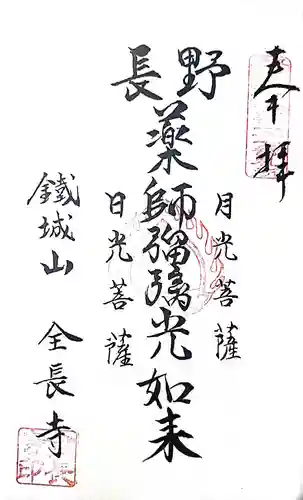 奉拝
月光菩薩
長野
薬師瑠璃光如来
日光菩薩
鐵城山 全長寺